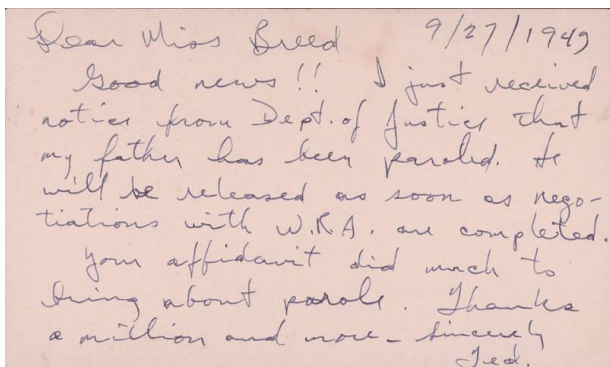 Dear Miss Breed 9/27/1942
Good news!! I just received
notice from Dept. of Justice that
my father has been paroled. He
will be released as soon as nego-
tiations with W.R.A. are completed.
Your affidavit did much to
bring about parole. Thanks
a million and more - Sincerely
Ted.